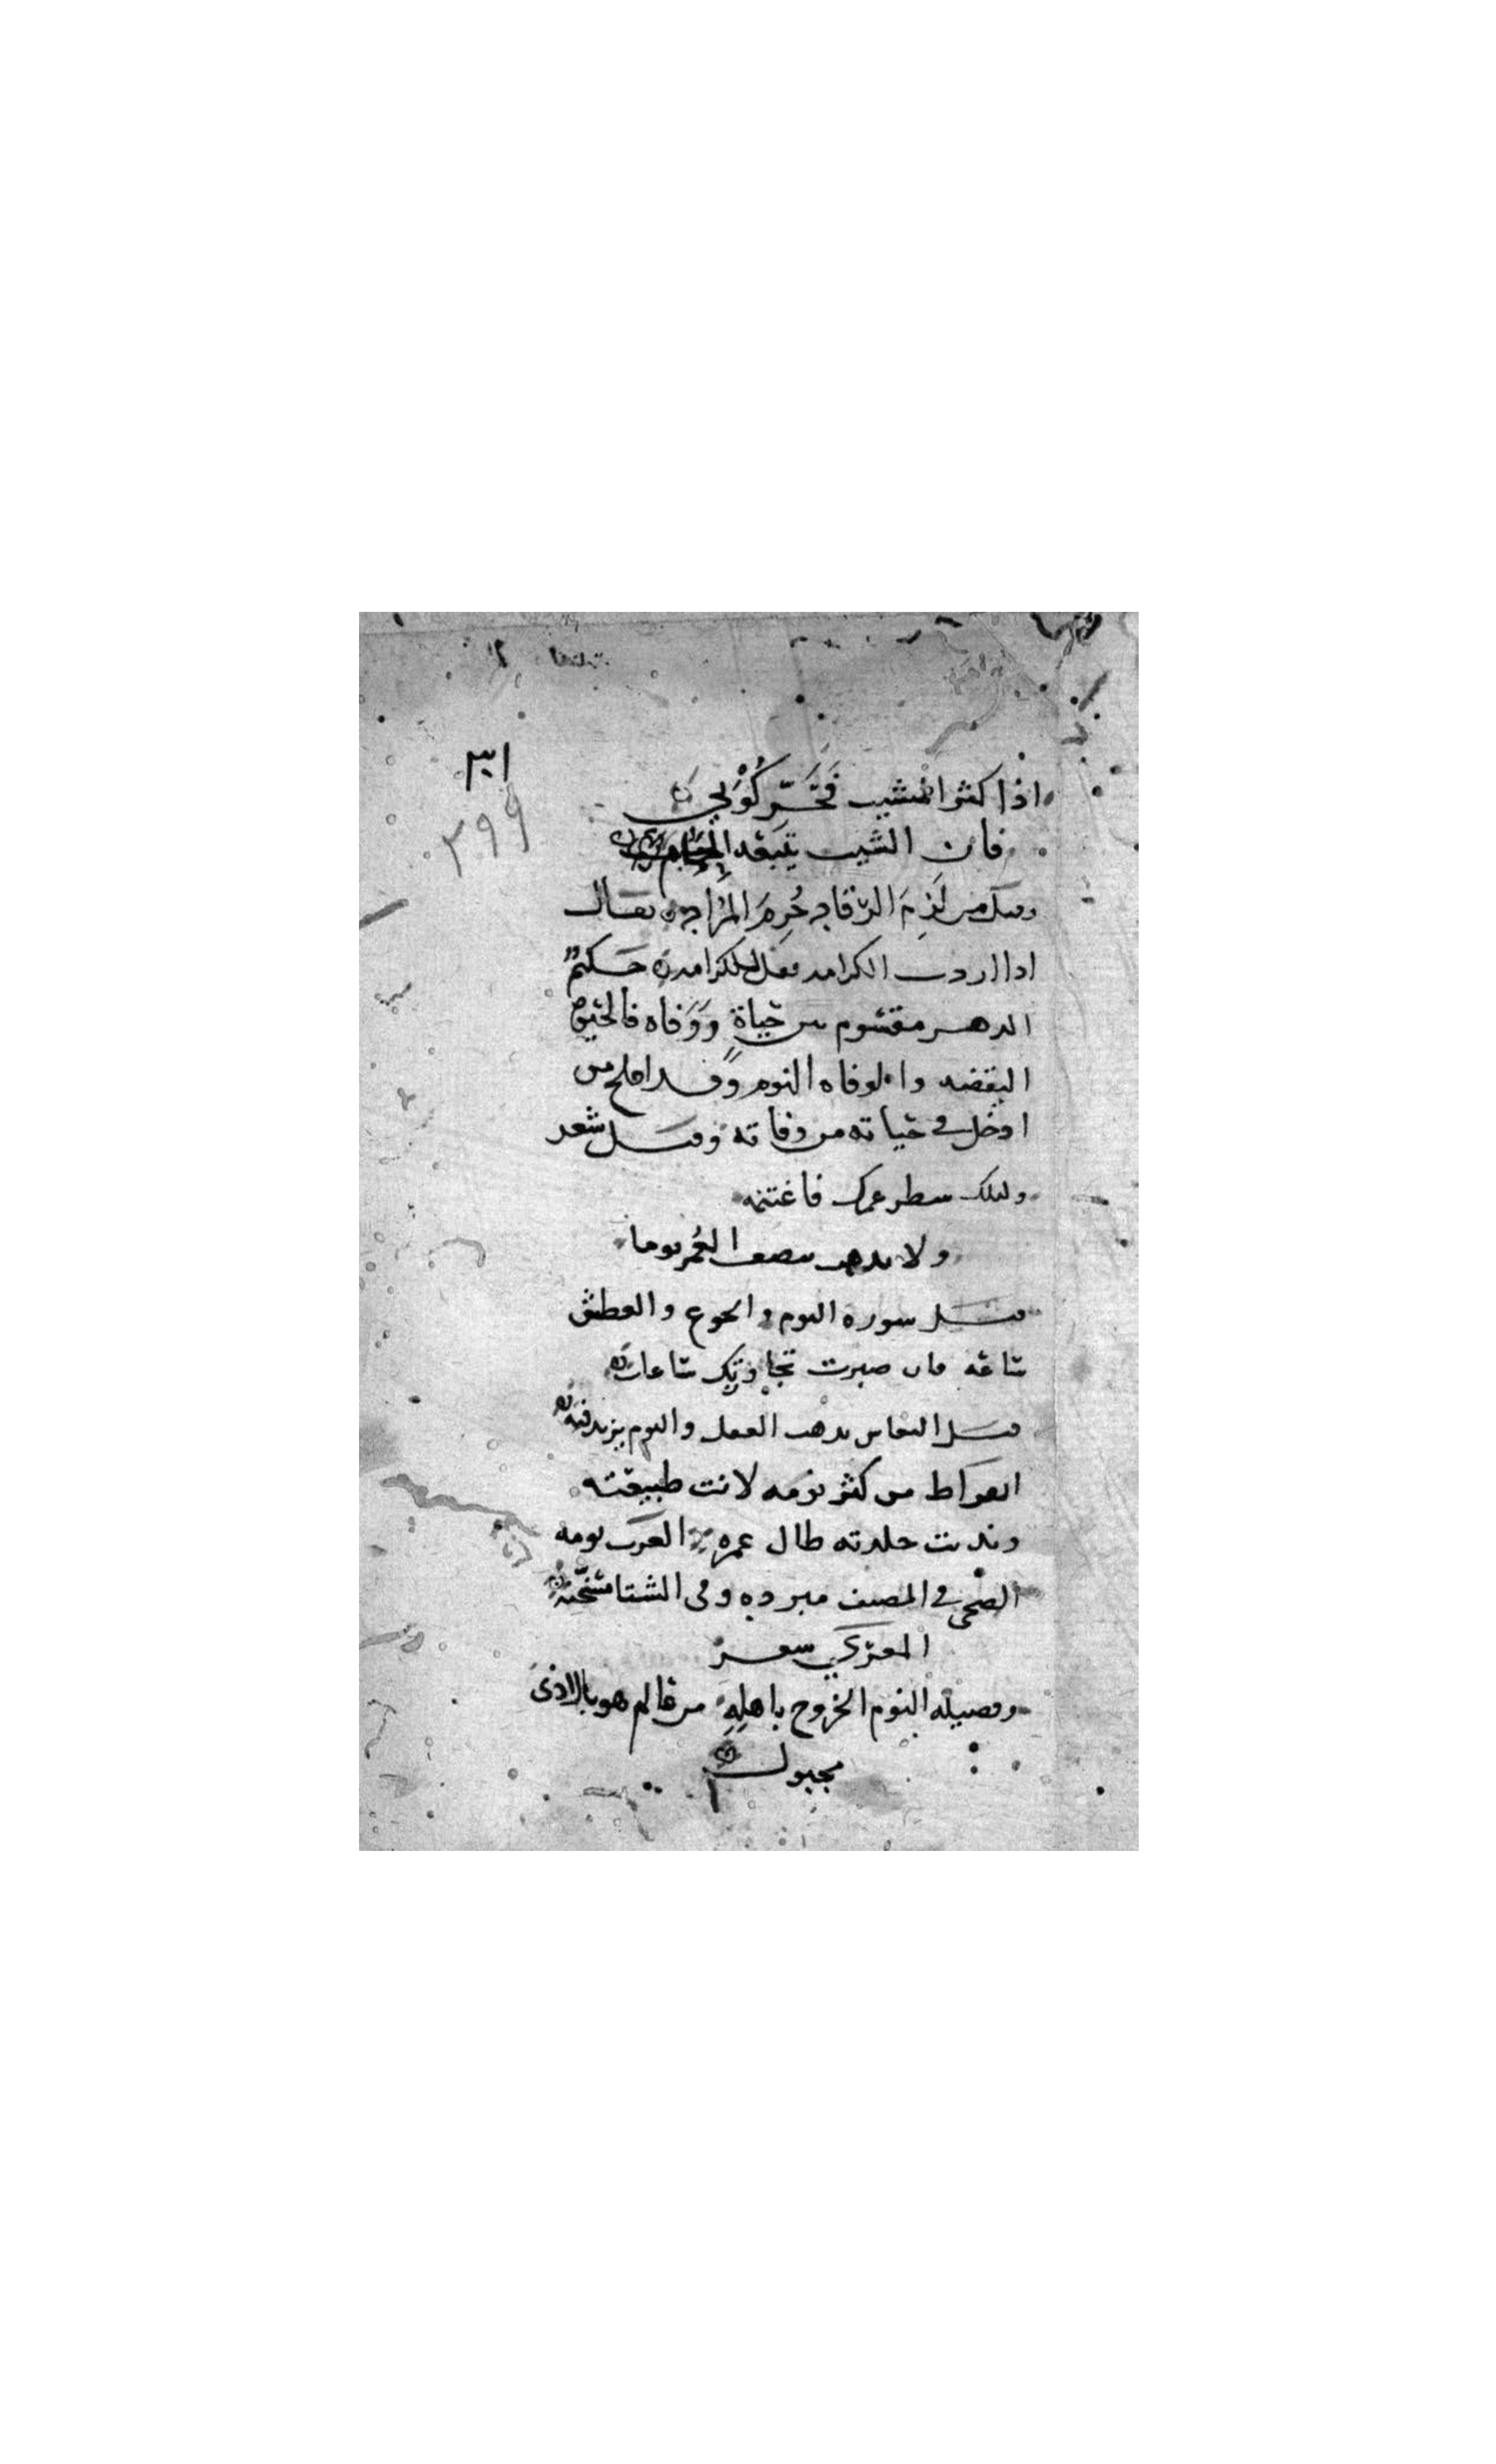 ٣١
٣٩٩
اذا كثر المشيب فحركوني
فان الشيب يتبعه الحمام
وقيل من لزم الرقاد حرم المراد يقال
اذا اردت الكرامه فقل للكرا مه حكيم
الدهر مقسوم بين حياة ووفاه فالحيوة
اليقضه والوفاه النوم وقد افلح من
ادخل في حياته من وفاته وقيل شعر
وليلك شطر عمرك فاغتنمه
ولا تذهب بنصف العمر نوما
قيل سورة النوم والجوع والعطش
ساعة فان صبرت تجاوزتك ساعات
قيل النعاس يذهب العقل والنوم يزيد فيه
بقراط من كثر نومه لانت طبيعته
ونديت جلدته طال عمره العرب نومه
الضحى في الصيف مبرده وفي الشتا مسخنه
المعري شعر
وفضيلة النوم الخروج باهله من عالم هو بالاذى
مجبول